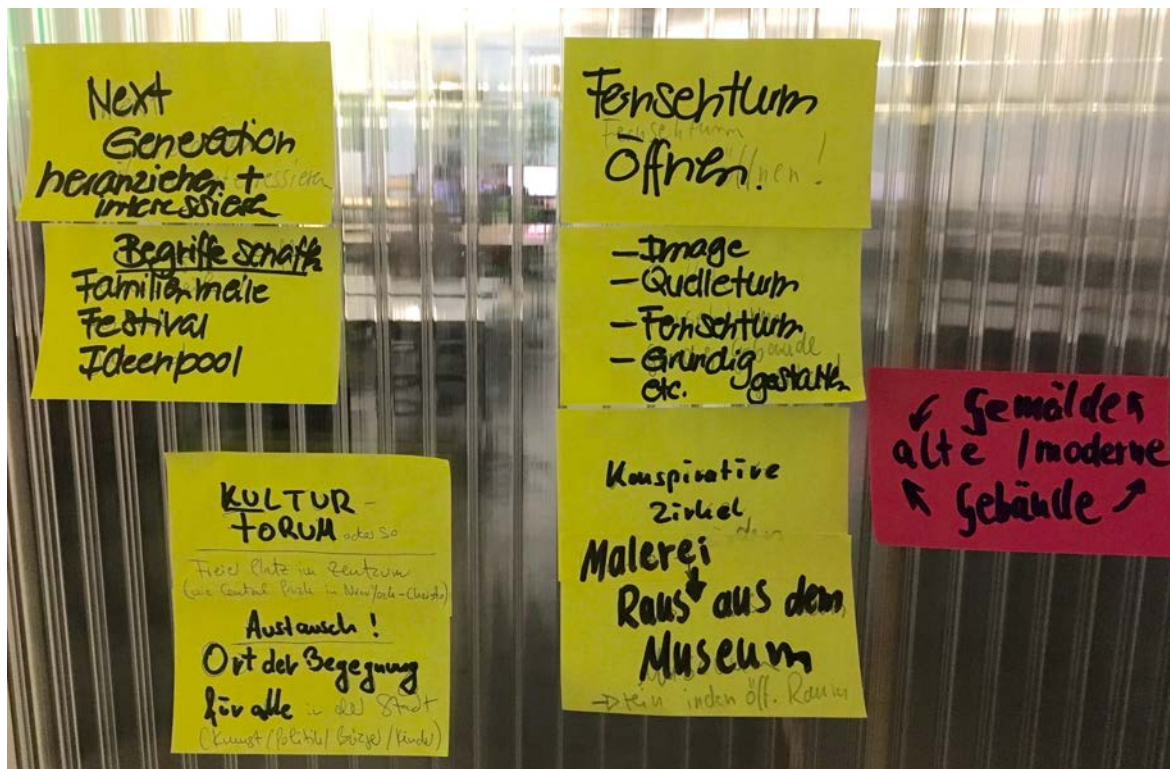 Next
Generation
heranziehen +
interessieren
Begriffe schaffen
Familienmeile
Festival
Ideenpool
KULTUR-
FORUM oder so
Freier Platz im Zentrum
(wie Central Park in New York - Christo)
Austausch!
Ort der Begegnung
für alle in der Stadt
(Kunst/Politik/Bürger/Kinder)
Fernsehturm
Fernsehturm
Öffnen!
öffnen!
- Image
- Quelleturm
- Fernsehturm
- Grundig
etc. gestalten
Gebäude
Konspirative
Zirkel
Malerei
Raus aus dem
Museum
rein in den öff. Raum
Gemälde
alte / moderne
Gebäude